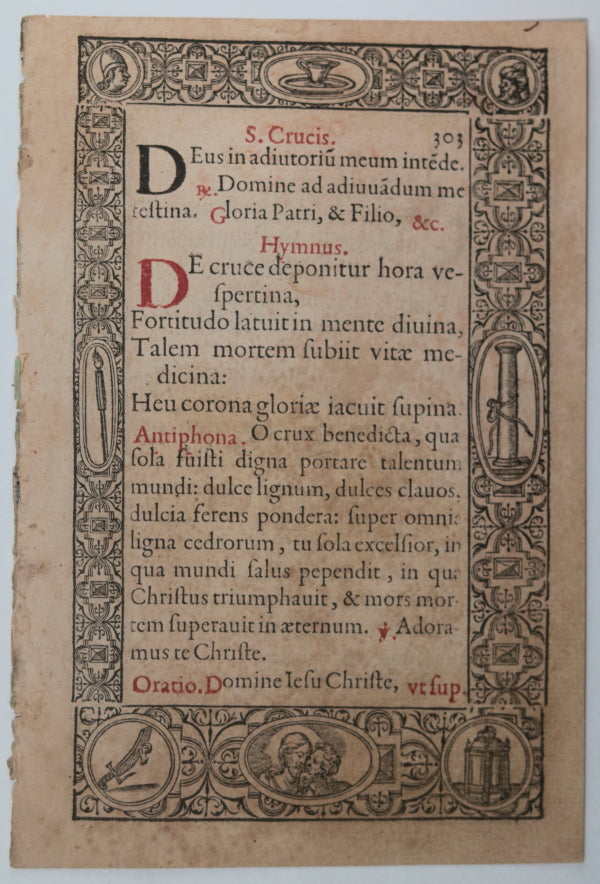 S. Crucis. 303
DEus in adiutoriũ meum intẽde.
℟. Domine ad adiuuãdum me
festina. Gloria Patri, & Filio, &c.
Hymnus.
DE cruce deponitur hora ve-
spertina,
Fortitudo latuit in mente diuina,
Talem mortem subiit vitæ me-
dicina:
Heu corona gloriæ iacuit supina.
Antiphona. O crux benedicta, qua
sola fuisti digna portare talentum
mundi: dulce lignum, dulces clauos,
dulcia ferens pondera: super omni
ligna cedrorum, tu sola excelsior, in
qua mundi salus pependit, in qu
Christus triumphauit, & mors mor-
tem superauit in æternum. ℣. Adora-
mus te Christe.
Oratio. Domine Iesu Christe, vt sup.